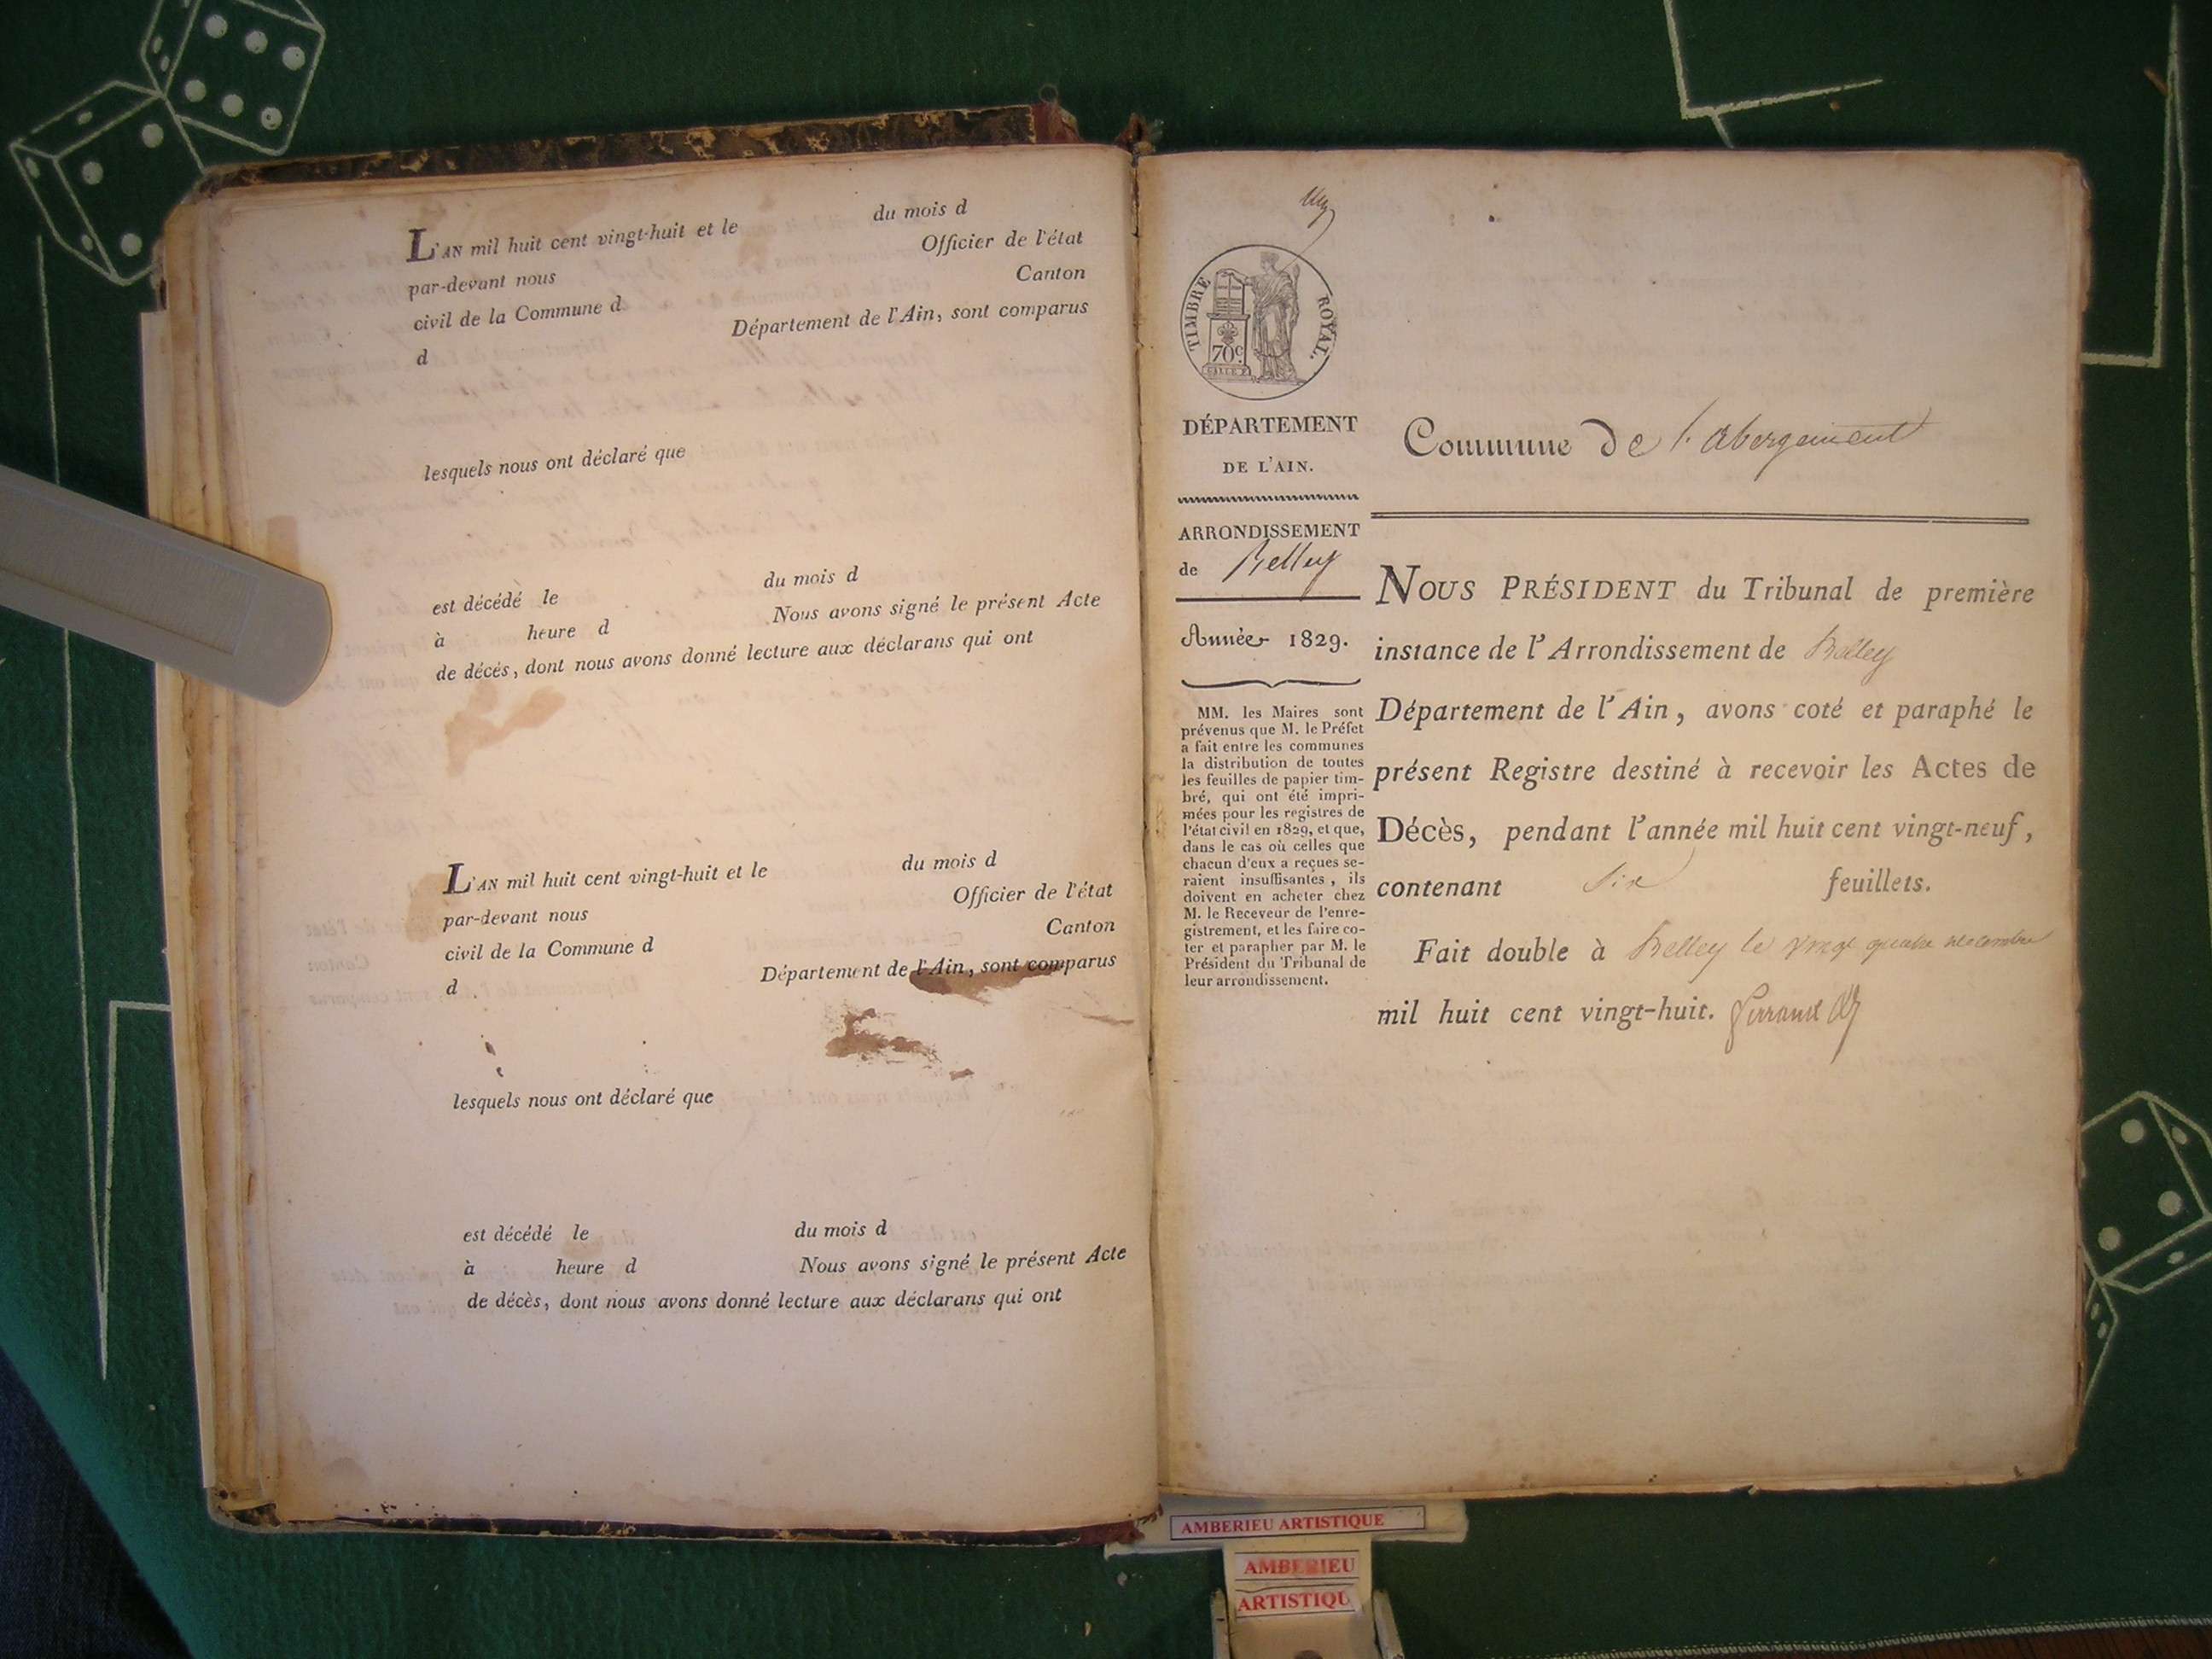 L'AN mil huit cent vingt-huit et le du mois d
par-devant nous Officier de l'état
civil de la Commune d Canton
d Département de l'Ain, sont comparus
lesquels nous ont déclaré que
est décédé le du mois d
à heure d Nous avons signé le présent Acte
de décés, dont nous avons donné lecture aux déclarans qui ont
L'AN mil huit cent vingt-huit et le du mois d
par-devant nous Officier de l'état
civil de la Commune d Canton
d Département de l'Ain, sont comparus
lesquels nous ont déclaré que
est décédé le du mois d
à heure d Nous avons signé le présent Acte
de décès, dont nous avons donné lecture aux déclarans qui ont
TIMBRE ROYAL.
70c.
DÉPARTEMENT
DE L'AIN.
ARRONDISSEMENT
de Belley
Année 1829.
MM. les Maires sont
prévenus que M. le Préfet
a fait entre les communes
la distribution de toutes
les feuilles de papier tim-
bré, qui ont été impri-
mées pour les registres de
l'état civil en 1829, et que,
dans le cas où celles que
chacun d'eux a reçues se-
raient insuffisantes, ils
doivent en acheter chez
M. le Receveur de l'enre-
gistrement, et les faire co-
ter et parapher par M. le
Président du Tribunal de
leur arrondissement.
Commune de l'abergement
NOUS PRÉSIDENT du Tribunal de première
instance de l'Arrondissement de Belley
Département de l'Ain, avons coté et paraphé le
présent Registre destiné à recevoir les Actes de
Décès, pendant l'année mil huit cent vingt-neuf,
contenant Six feuillets.
Fait double à Belley le vingt quatre decembre
mil huit cent vingt-huit.
AMBERIEU ARTISTIQUE
AMBERIEU
ARTISTIQU